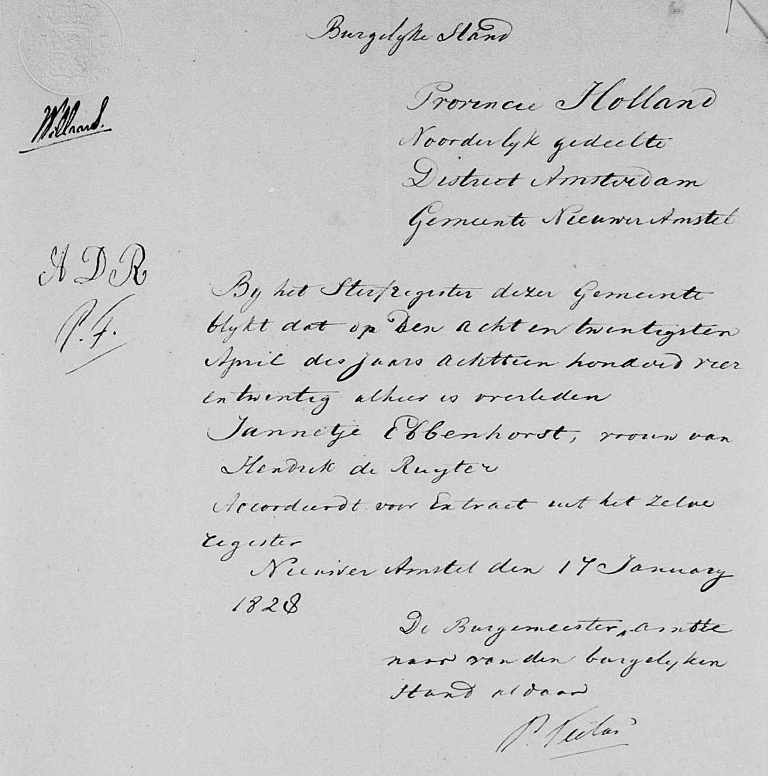 Burgelyke Stand
Provincie Holland
Willaard.
Noorderlyk gedeelte
District Amsterdam
Gemeente Nieuwer Amstel
A D R
P. F.
By het Sterfregister dezer Gemeente
blykt dat op Den acht en twintigsten
April des jaars achttien honderd vier
en twintig alhier is overleden
Jannetje Ebbenhorst, vrouw van
Hendrik de Ruyter
Accordeerdt voor Extract uit het zelve
register
Nieuwer Amstel den 17 January
1828
De Burgemeester, ambte
naar van den burgelyken
Stand aldaar
P.